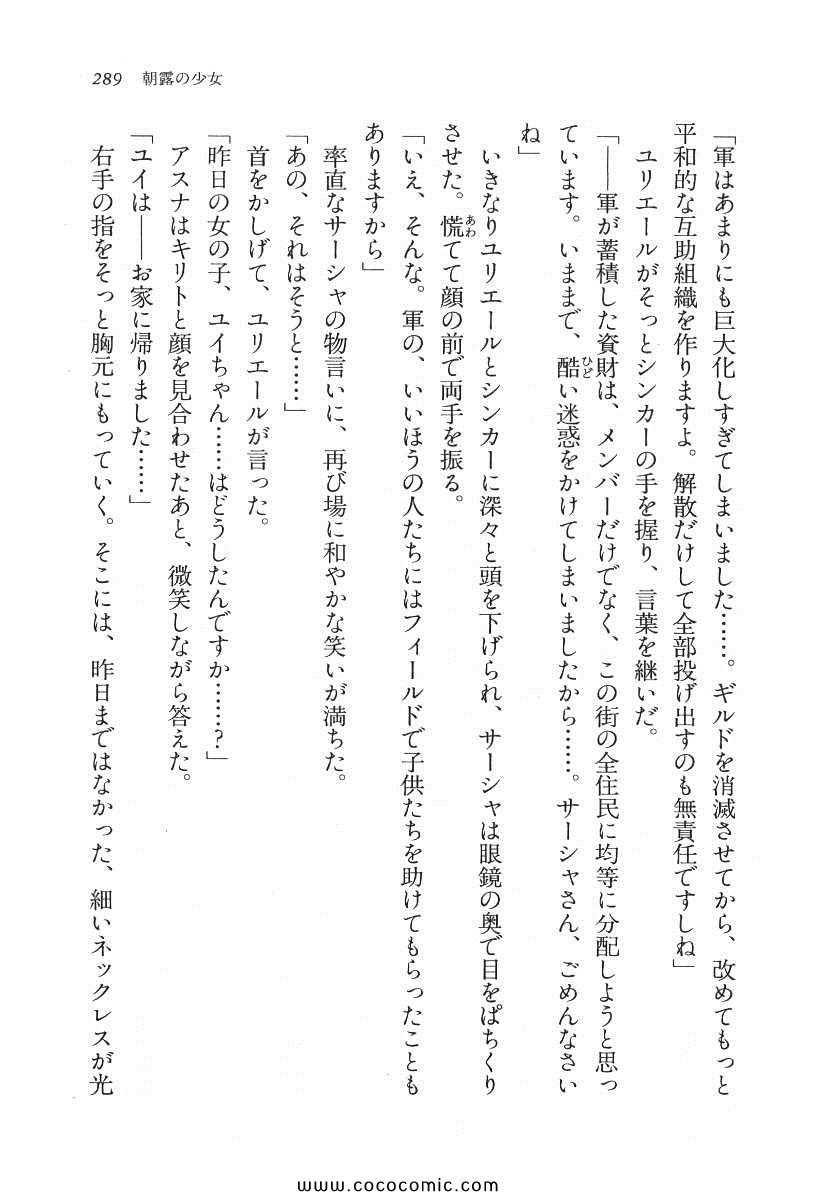 289 朝露の少女
「軍はあまりにも巨大化しすぎてしまいました……。ギルドを消滅させてから、改めてもっと
平和的な互助組織を作りますよ。解散だけして全部投げ出すのも無責任ですしね」
ユリエールがそっとシンカーの手を握り、言葉を継いだ。
「――軍が蓄積した資財は、メンバーだけでなく、この街の全住民に均等に分配しようと思っ
ています。いままで、酷い迷惑をかけてしまいましたから……。サーシャさん、ごめんなさい
ね」
いきなりユリエールとシンカーに深々と頭を下げられ、サーシャは眼鏡の奥で目をぱちくり
させた。慌てて顔の前で両手を振る。
「いえ、そんな。軍の、いいほうの人たちにはフィールドで子供たちを助けてもらったことも
ありますから」
率直なサーシャの物言いに、再び場に和やかな笑いが満ちた。
「あの、それはそうと……」
首をかしげて、ユリエールが言った。
「昨日の女の子、ユイちゃん……はどうしたんですか……？」
アスナはキリトと顔を見合わせたあと、微笑しながら答えた。
「ユイは――お家に帰りました……」
右手の指をそっと胸元にもっていく。そこには、昨日まではなかった、細いネックレスが光
www.cococomic.com